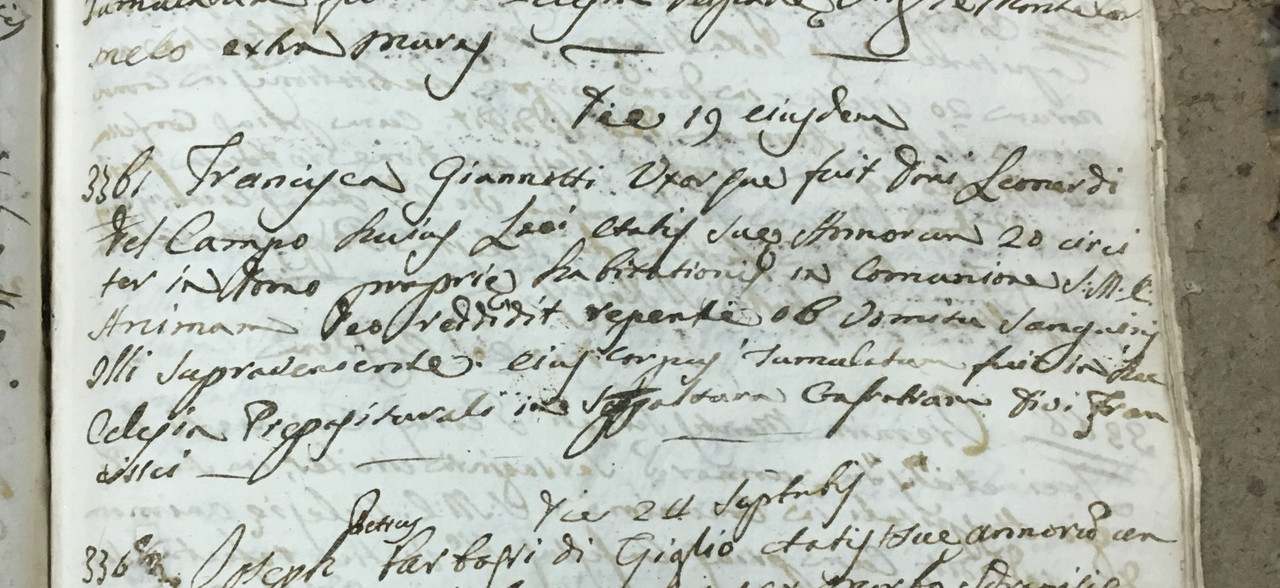 melo extra muros
Die 19 eiusdem
3361 Francisca Giannotti Uxorque fuit Dñi Leonardi
del Campo huius Loci etatis sue Annorum 20 circi
ter in domo proprie habitationis in Comunione S. M. E.
Animam Deo reddidit repente ob Vomitu Sanguinis
Illi Supraveniente eius Corpus Tumulatum fuit in hac
Eclesia Prepositurali in Sepoltura Confratrum Divi Fran
cisci
Die 24 Septebris
Petrus
336 Joseph di Giglio etatis sue annorũ